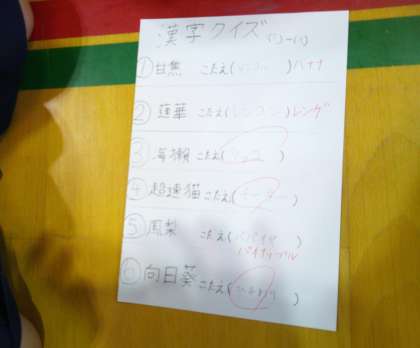 漢字クイズ
① 甘蕉 こたえ( )バナナ
② 蓮華 こたえ( )レンゲ
③ 海獺 こたえ(ラッコ)
④ 超速猫 こたえ(チーター)
⑤ 鳳梨 こたえ(パパイヤ)
パイナップル
⑥ 向日葵 こたえ(ひまわり)